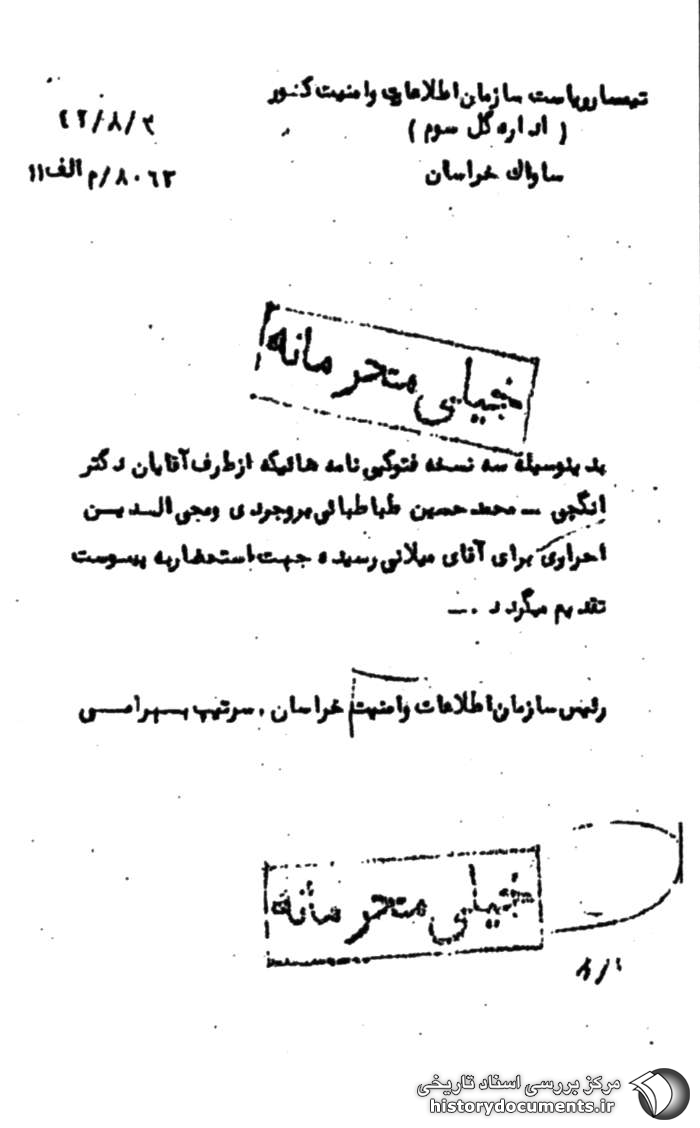 تیمسار ریاست سازمان اطلاعات و امنیت کشور
( اداره کل سوم )
۴۲/۸/۲
ساواک خراسان
۸۰۶۲/م الف ۱۱
خیلی محرمانه
بدینوسیله سه نسخه فتوکپی نامه هائیکه از طرف آقایان دکتر
انگجی ـ محمد حسین طباطبائی بروجردی و محی الدین
احراری برای آقای میلانی رسیده جهت استحضار به پیوست
تقدیم میگردد .ـ
رئیس سازمان اطلاعات و امنیت خراسان . سرتیپ بهرامی
خیلی محرمانه
مرکز بررسی اسناد تاریخی
historydocuments.ir